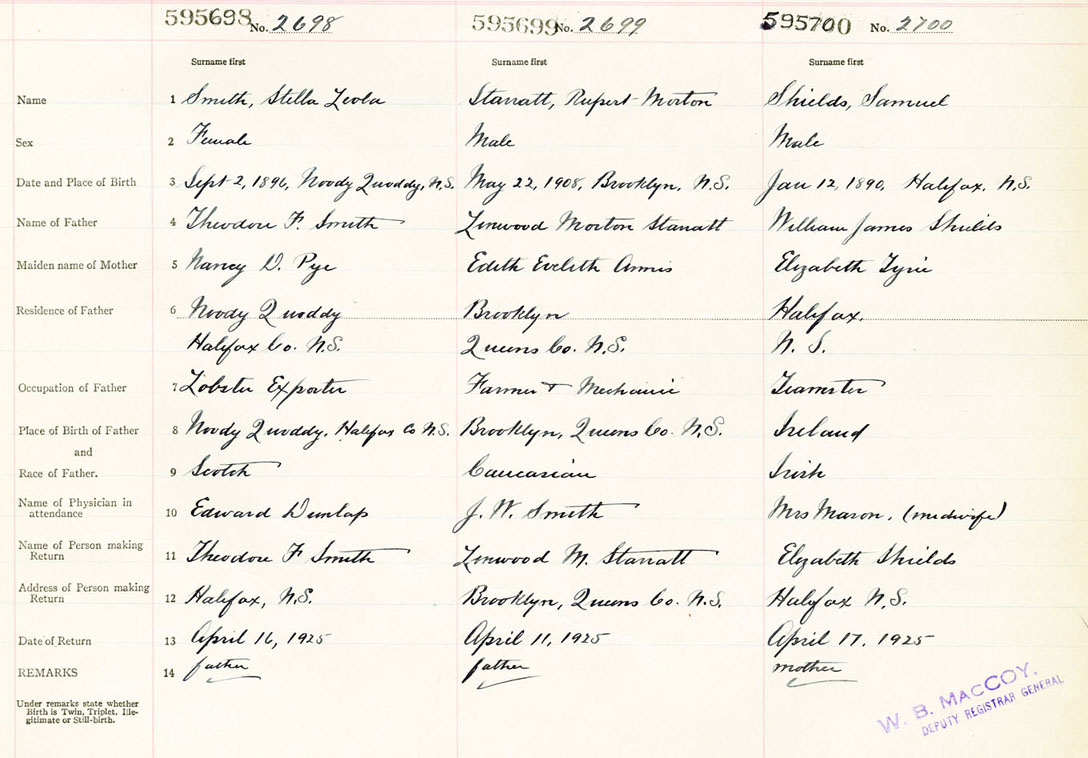 595698 No. 2698 595699 No. 2699 595700 No. 2700
Surname first Surname first Surname first
Name 1 Smith, Stella Leola Starratt, Rupert Morton Shields, Samuel
Sex 2 Female Male Male
Date and Place of Birth 3 Sept 2, 1896, Moody Quoddy, N.S. May 22, 1908, Brooklyn, N.S. Jan 12, 1890, Halifax, N.S.
Name of Father 4 Theodore F. Smith Linwood Morton Starratt William James Shields
Maiden name of Mother 5 Nancy D. Pye Edith Eveleth Annis Elizabeth Tyrie
Residence of Father 6 Moody Quoddy Brooklyn Halifax,
Halifax Co. N.S. Queens Co. N.S. N. S.
Occupation of Father 7 Lobster Exporter Farmer + Mechanic Teamster
Place of Birth of Father 8 Moody Quoddy, Halifax Co N.S. Brooklyn, Queens Co. N.S. Ireland
and
Race of Father. 9 Scotch Caucasian Irish
Name of Physician in
attendance 10 Edward Dunlap J. W. Smith Mrs Mason, (midwife)
Name of Person making
Return 11 Theodore F Smith Linwood M. Starratt Elizabeth Shields
Address of Person making
Return 12 Halifax, N.S. Brooklyn, Queens Co. N.S. Halifax N.S.
Date of Return 13 April 16, 1925 April 11, 1925 April 17, 1925
REMARKS 14 father father mother
Under remarks state whether
Birth is Twin, Triplet, Ille-
gitimate or Still-birth.
W. B. MacCOY,
DEPUTY REGISTRAR GENERAL